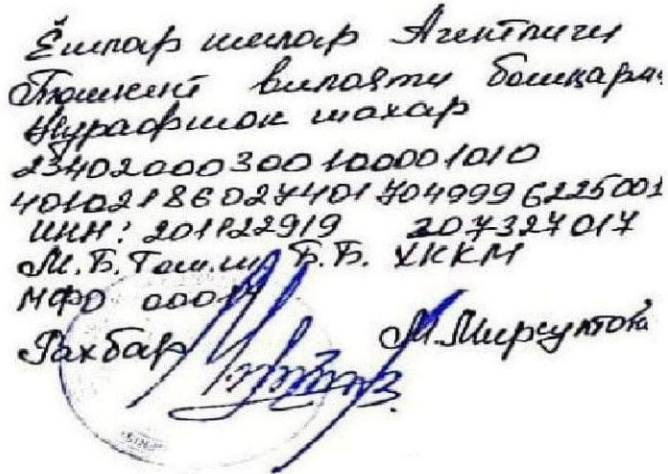 Ёшлар ишлар Агентлиги
Тошкент вилояти бошқарма
Нурафшон шахар
23402000300100001010
401021860274017049996225001
ИНН: 201122919 207327017
М.Б. Тош.ш Б.Б. ХККМ
МФО 00014
Рахбар М.Мирсултова